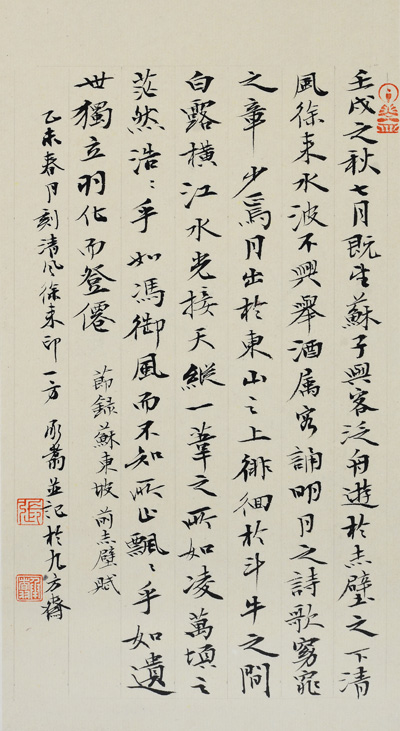 壬戌之秋七月既望蘇子與客泛舟遊於赤壁之下清
風徐来水波不興舉酒属客誦明月之詩歌窈窕
之章少焉月出於東山之上徘徊於斗牛之間
白露橫江水光接天縱一葦之所如凌萬頃之
茫然浩〻乎如馮御風而不知所止飄〻乎如遺
世獨立羽化而登僊
節録蘇東坡前赤壁賦
乙未春月刻清风徐来印一方 並記於九方齋
張